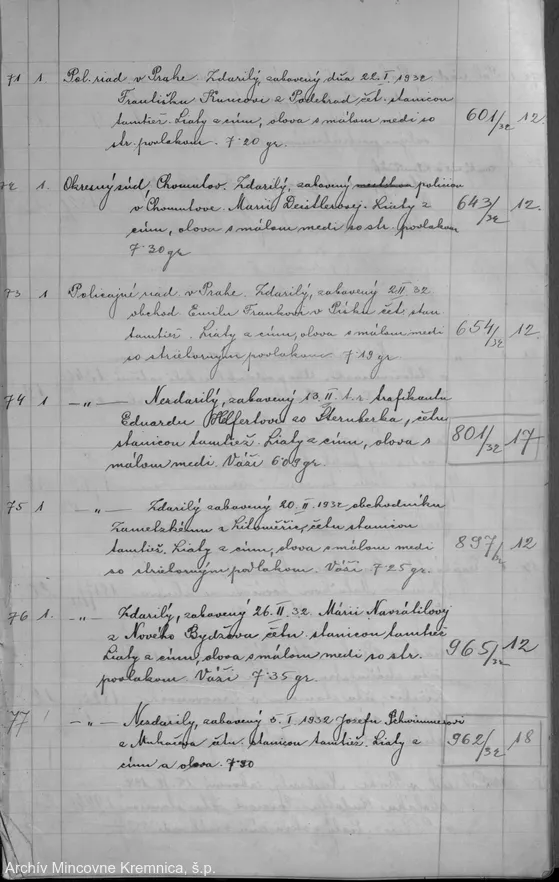 71 1. Pol. riad. v Prahe. Zdarilý, zabavený dňa 22. I. 1932
Františku Kuncovi z Poděbrad čet. stanicou
tamtiež. Liaty z cínu, olova s málom medi so
str. povlakom. 7·20 gr. 601/32 12.
72 1. Okresný súd Chomutov. Zdarilý, zabavený políciou
v Chomutove Marii Deistlerovej. Liaty z
cínu, olova s málom medi so str. povlakom
7·30 gr 643/32 12.
73 1 Policajné riad. v Prahe. Zdarilý, zabavený 2. II. 32.
obchod. Emilu Frankovi v Písku čet. stan.
tamtiež. Liaty z cínu, olova s málom medi
so strieborným povlakom 7·19 gr. 654/32 12.
74 1 —„— Nezdarilý, zabavený 13. II. t. r. trafikantu
Eduardu zo Šternberka, četn.
stanicou tamtiež. Liaty z cínu, olova s
málom medi. Váži 6·09 gr. 801/32 17
75 1 —„— Zdarilý zabavený 20. II. 1932 obchodníku
Zametzkému z Litoměříc, četn. stanicou
tamtiež. Liaty z cínu, olova s málom medi
so strieborným povlakom. Váži 7·25 gr. 897/32 12
76 1. —„— Zdarilý, zabavený 26. II. 32. Márii Navrátilovej
z Nového Bydžova četn. stanicou tamtiež
Liaty z cínu, olova s málom medi so str.
povlakom Váži 7·35 gr. 965/32 12
77 1 —„— Nezdarilý, zabavený 5. I. 1932 Josefu Schwimmerovi
z Mukačeva četn. stanicou tamtiež. Liaty z
cínu a olova. 7·30 962/32 18
Archív Mincovne Kremnica, š.p.